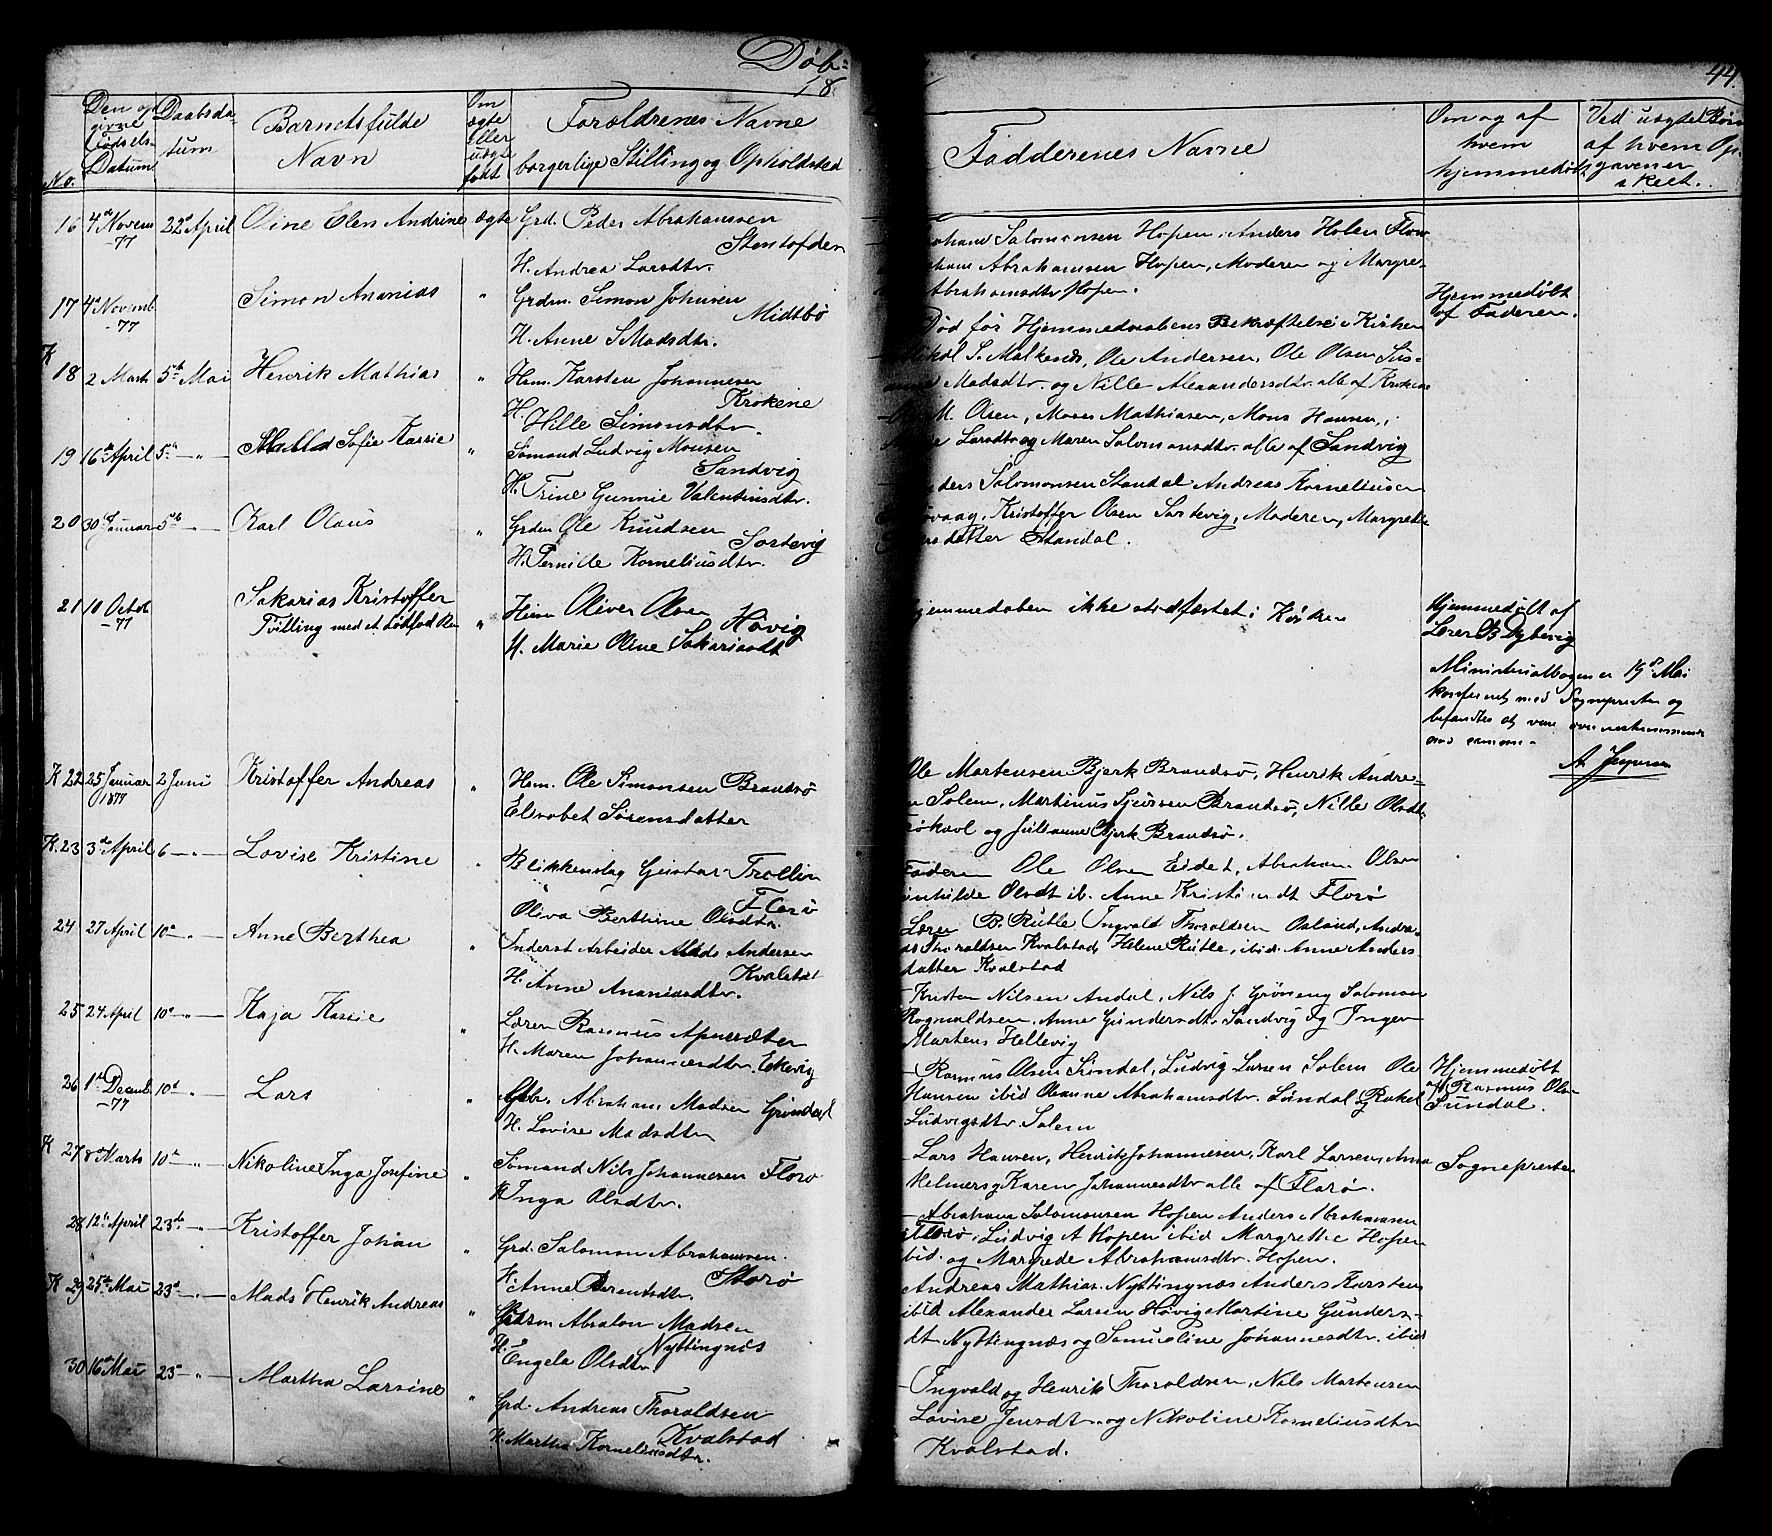 Døb-
18
44.
No.
Den op
givne
Fødsels-
Datum
Daabsda-
tum
Barnets fulde
Navn
Om
ægte
eller
uægte
født
Forældrenes Navne
borgerlige Stilling og Opholdsted
Fadderenes Navne
Om og af
hvem
hjemmedøbt
Ved uægte Børn
af hvem Op-
gaven er
skeet.
16 4de Novem -77 22de April Oline Elen Andrine ægte Grd. Peder Abrahamsen
Stensfden
H. Andrea Larsdtr.
Salomonsen Hopen, Anders Holen Florø
Abrahamsen Hopen, Moderen og Margre-
Abrahamsdtr Hopen.
17 4de Novemb -77 Simon Ananias " Grdm. Simon Johnsen
Midtbø
H. Anne S Madsdtr.
Død før Hjemmedaabens Bekræftelse i Kirken
Hjemmedøbt
af Faderen.
K 18 2 Marts 5te Mai Henrik Mathias " Hsm. Karsten Johannesen
Krokene
H. Hille Simonsdtr.
S. Malkenes, Ole Andersen, Ole Olsen Sus-
Madsdtr. og Nille Alexandersdtr. alle af Krokene
19 16de April 5te " Sofie Kassie " Sømand Ludvig Monsen
Sandvig
H. Trine Gunnie Valentinsdtr.
M. Olsen, Moses Mathiasen, Mons Hansen,
Larsdtr og Maren Salomonsdtr. alle af Sandvig
20 30 Januar 5te Karl Olaus " Grdm Ole Knudsen
Sortevig
H. Pernille Korneliusdtr.
Salomonsen Standal, Andreas Korneliusen
Kristoffer Olsen Sortevig, Moderen, Margrethe
datter Standal.
21 10 Octob -77 Sakarias Kristoffer
Tvilling med et Dødfød
" Hsm Oliver Olsen Høvig
H. Marie Oline Sakariasdt
Hjemmedaben ikke stadfæstet i Kirken
Hjemmedøbt af
Lærer B Dybevig
Ministerialbogen er 19de Mai
konfereret med Sognepresten og
befandtes at være overensstemmende
med samme.
A Jespersen
K 22 25 Januar 1877 2 Juni Kristoffer Andreas " Hsm. Ole Simonsen Brandsø
Elisabet Sørensdatter
Ole Martensen Bjerk Brandsø, Henrik Andre-
Solem, Martinus Sjursen Brandsø, Nille Olsdtr
og Julianne Bjerk Brandsø.
K. 23 3de April 6 " Lovise Kristine " Blikkenslag Gustav Trollin
Florø
Oliva Berthine Olsdtr.
Faderen Ole Olsen Eidet, Abraham Olsen
Olsdt ib. Anne Kristi dt Florø
24 27 April 10de " Anne Berthea " Inderst Arbeider Mads Andersen
Kvalstad
H. Anne Ananiasdtr.
Lærer B. Rutle Ingvald Thoraldsen Osland, Andre-
as Thoraldsen Kvalstad, Helene Rutle, ibid. Anne Anders-
datter Kvalstad
25 24 April 10de " Kaja Kassie " Lærer Rasmus Apneseter
H. Maren Johannesdtr. Eikevig
Kristen Nilsen Andal, Nils J. Grøneng Salomon
Rognaldsen, Anne Gundersdtr. Sandvig og Inger
Martens Hellevig
26 1de Decmb -77 10de " Lars " Abraham Madsen Grøndal
H. Lovise Madsdtr
Rasmus Olsen Sundal, Ludvig Larsen Solem Ole
Hansen ibid Oleanne Abrahamsdtr. Sundal og Rakel
Ludvigsdtr. Solem
Hjemmedøbt
af Rasmus Ols-
Sundal.
K 27 8de Marts 10de " Nikoline Inga Josefine " Sømand Nils Johannesen Florø
H Inga Olsdtr.
Lars Hansen, Henrik Johannesen, Karl Larsen, Anna
Helmers og Karen Johannesdtr alle af Florø.
Sognepresten
28 12te April 23de " Kristoffer Johan " Grd. Salomon Abrahamsen.
H. Anne Berentsdtr. Storø
Abraham Salomonsen Hopen Anders Abrahamsen
Florø, Ludvig A Hopen ibid Margrethe Hopen
ibid. og Margrede Abrahamsdtr. Hopen.
K 29 25de Mai 23de " Mads Henrik Andreas " Absalon Madsen
Nyttingnes
H. Engela Olsdtr
Andreas Mathias. Nyttingnæs Anders Karsten
ibid Alexander Larsen Høvig Martine Gunders-
dt. Nyttingnæs og Samueline Johannesdtr. ibid
30 16de Mai 23 " Martha Larsine " Grd. Andreas Thoraldsen
Kvalstad
H. Martha Korneliusdtr.
Ingvald og Henrik Thoraldsen, Nils Martensen
Lovise Jensdt. og Nikoline Korneliusdtr
Kvalstad.